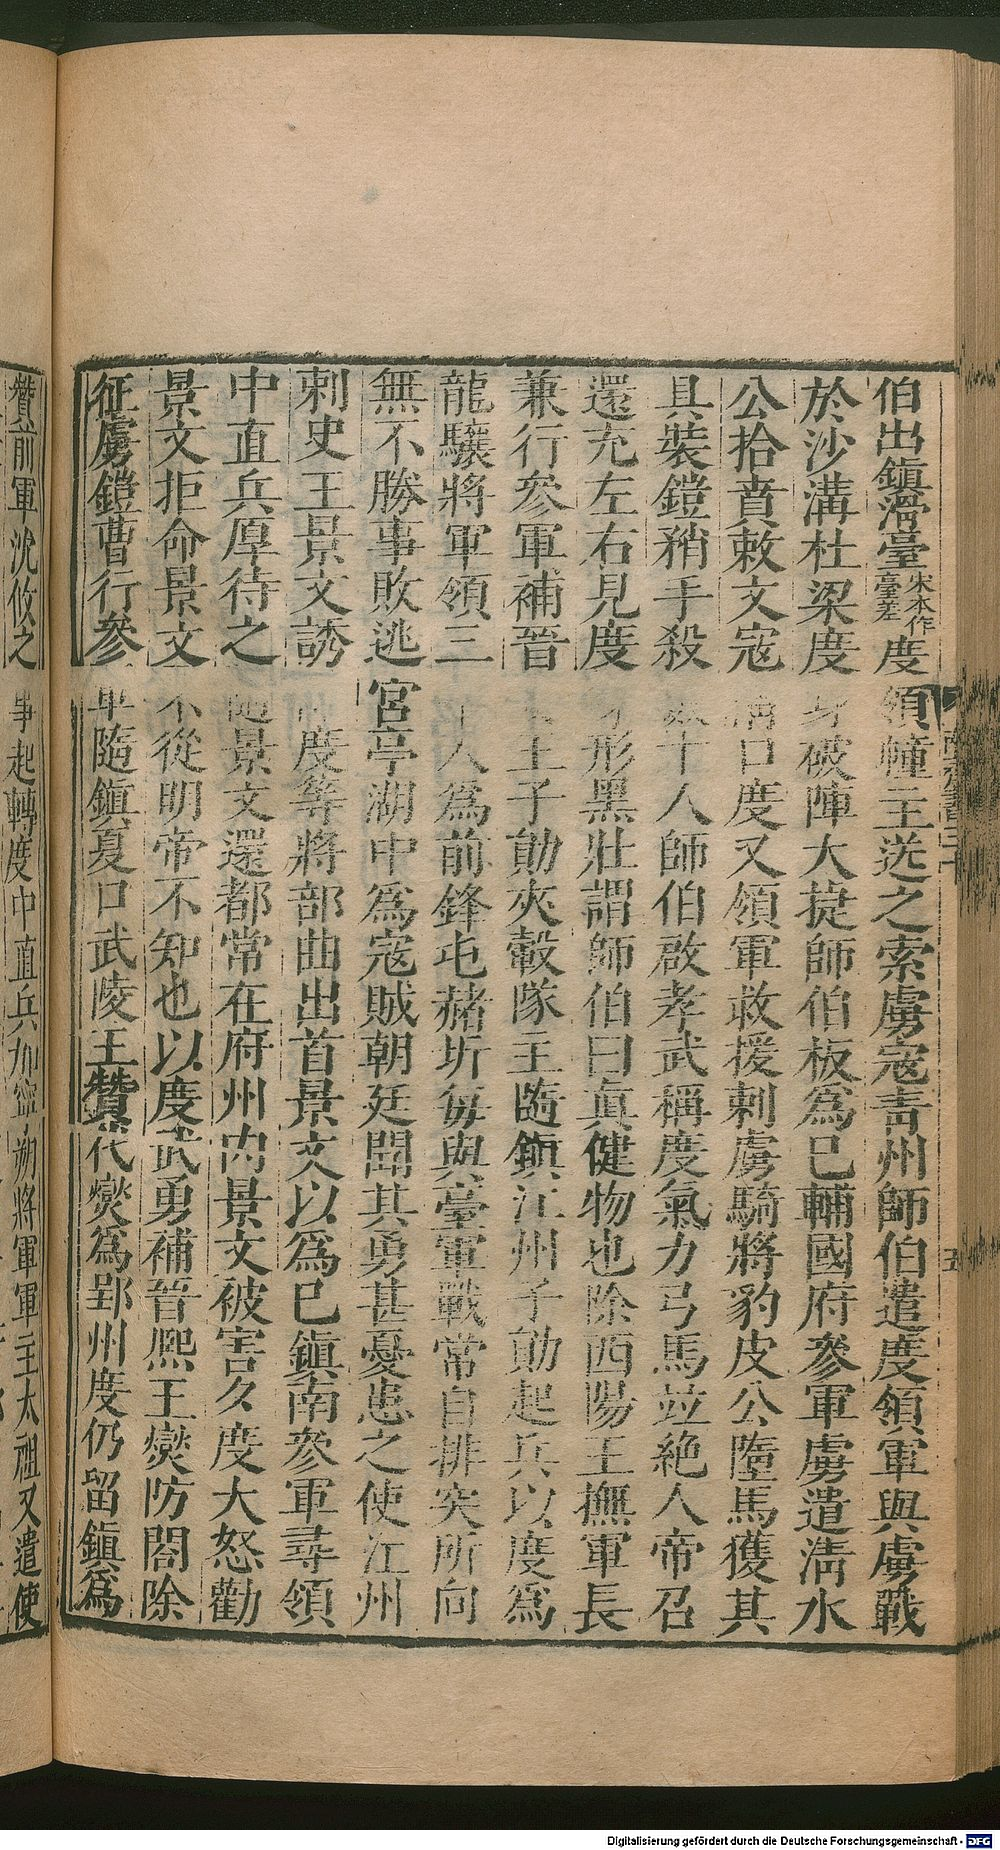 伯出鎮滑臺宋本作臺差度領幢主送之索虜寇靑州師伯遣度領軍與虜戰
於沙溝杜梁度身破陣大捷師伯板爲已輔國府參軍虜遣淸水
公拾賁敕文寇淸口度又領軍救援刺虜騎將豹皮公墮馬獲其
具裝鎧矟手殺數十人師伯啟孝武稱度氣力弓馬竝絕人帝召
還充左右見度形黑壯謂師伯曰眞健物也除西陽王撫軍長
兼行參軍補晉王子勛夾轂隊主隨鎮江州子勛起兵以度爲
龍驤將軍領三人爲前鋒屯赭圻每與臺軍戰常自排突所向
無不勝事敗逃宮亭湖中爲寇賊朝廷聞其勇甚憂患之使江州
刺史王景文誘度等將部曲出首景文以爲已鎮南參軍尋領
中直兵厚待之隨景文還都常在府州內景文被害久度大怒勸
景文拒命景文不從明帝不知也以度武勇補晉熙王燮防閤除
征虜鎧曹行參軍隨鎮夏口武陵王贊代燮爲郢州度仍留鎮爲
贊前軍沈攸之事起轉度中直兵加寧朔將軍軍主太祖又遣使
五
Digitalisierung gefördert durch die Deutsche Forschungsgemeinschaft - DFG